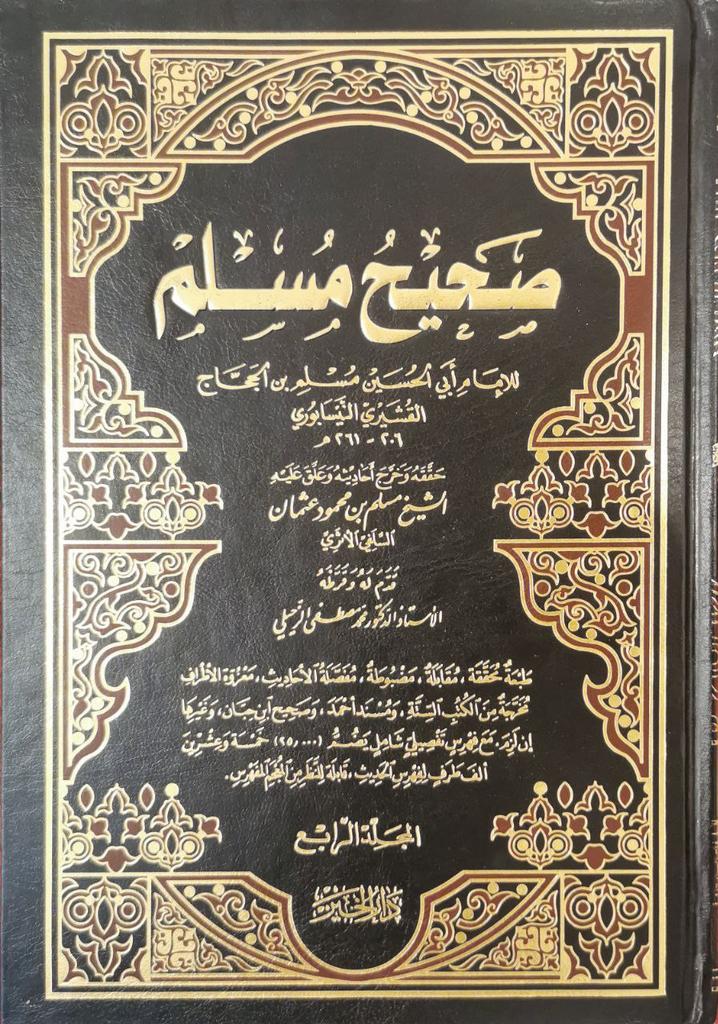 صَحِيْحُ مُسْلِمْ
للإِمَامِ أَبِي الْحُسَيْنِ مُسْلِمِ بنِ الْحَجَّاجِ
القُشَيْرِيِّ النَّيْسَابُورِيِّ
٢٠٦ - ٢٦١ هـ
حَقَّقَهُ وَخَرَّجَ أَحَادِيثَهُ وَعَلَّقَ عَلَيْهِ
الشيخ مسلم بن محمود عثمان
السَّلَفِيّ الأَثَرِيّ
قَدَّمَ لَهُ وَقَرَّظَهُ
الأستاذ الدكتور محمد مصطفى الزحيلي
طَبْعَةٌ مُحَقَّقَة، مُقَابَلَةٌ، مَضْبُوطَةٌ، مُفَصَّلَةُ الأَحَادِيثِ، مَعْزُوَّة الأَطْرَافِ
مُخَرَّجَةٌ مِنَ الكُتُبِ السِّتَّةِ، وَمُسْنَد أَحْمَدَ، وَصَحِيحِ ابنِ حِبَّان، وَغَيْرِهَا
إِن لَزِمَ. مَعَ فِهْرِسٍ تَفْصِيلِيٍّ شَامِلٍ يَضُمُّ (٢٥,٠٠٠) خَمْسَة وَعِشْرِينَ
أَلْف طَرَفٍ لِفِهْرِسِ الْحَدِيثِ، قَابِلَة لِلنَّظَرِ مِنَ الْمُعْجَمِ الْمُفَهْرَسِ.
المجَلَّد الرَّابِع
دَارُ الخَيْرِ